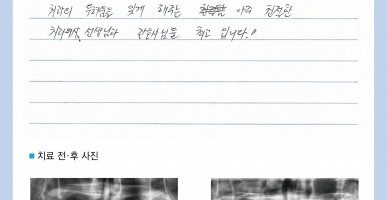 치과의 두려움을 잊게 해주는 아주 친절한
치과에서, 선생님과 간호사님들 최고 입니다.!!
■ 치료 전·후 사진